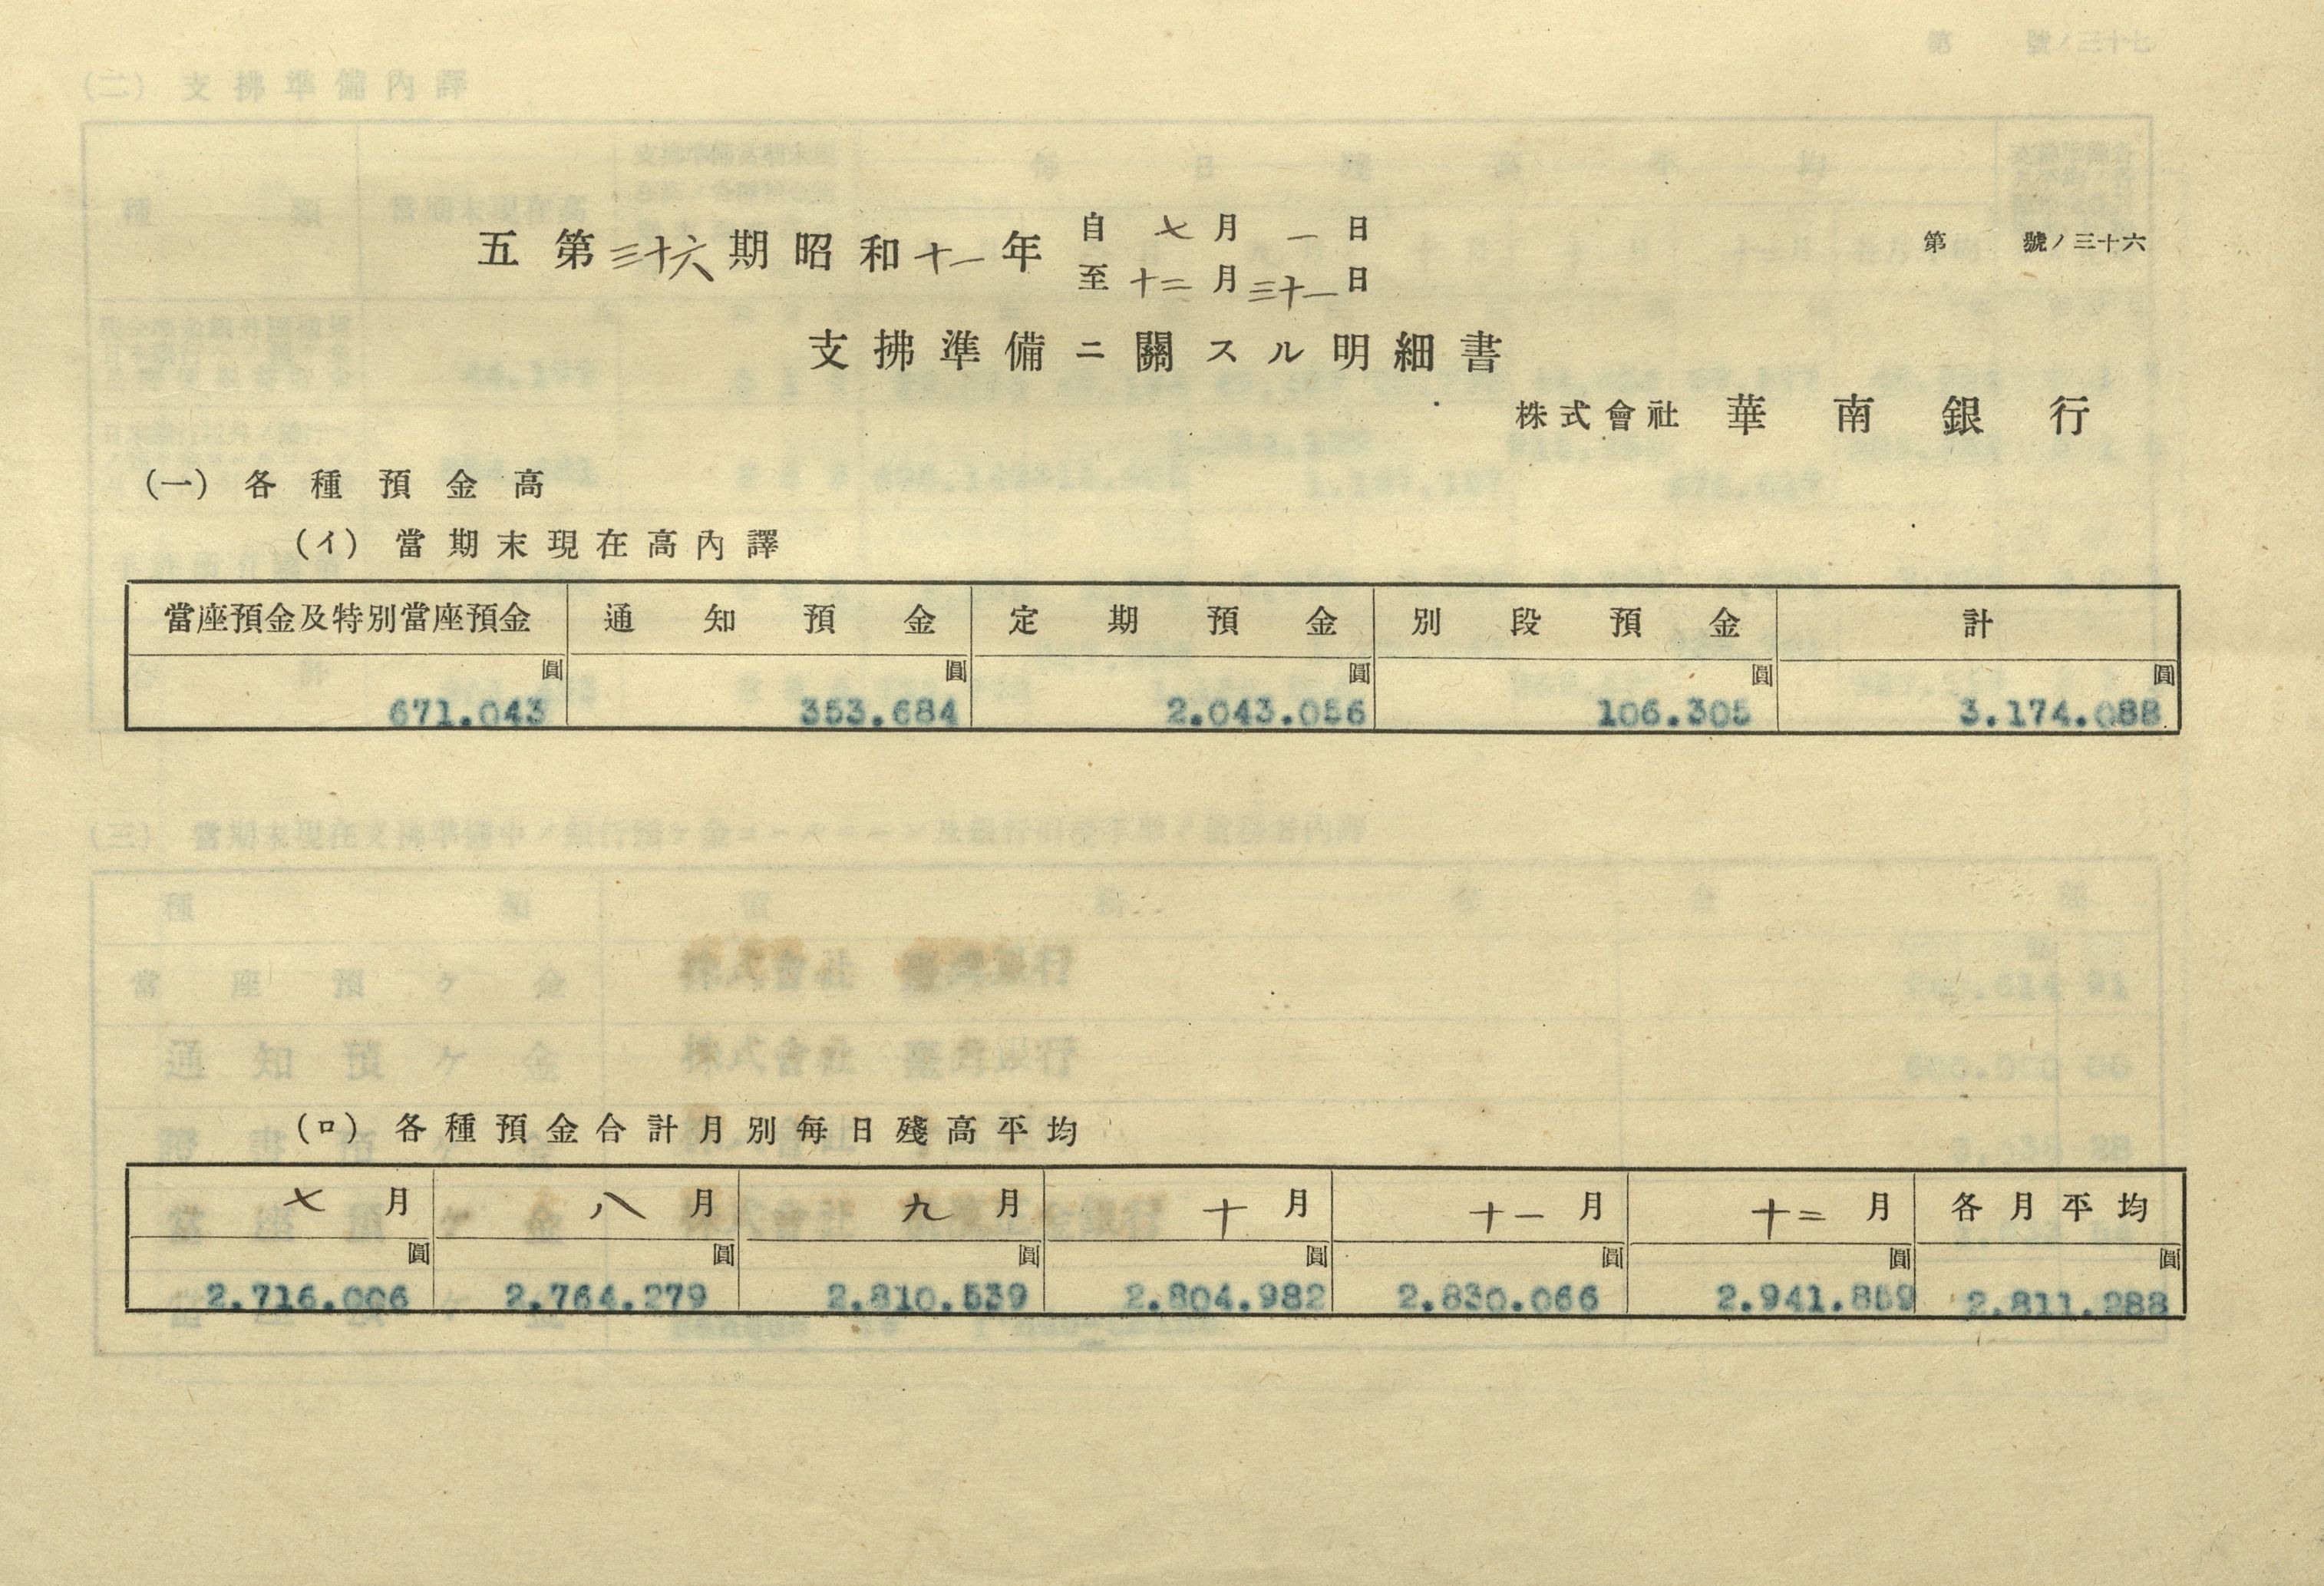 第 號ノ三十六
五 第三十六期昭和十一年 自 七月 一日
至 十二月三十一日
支拂準備ニ關スル明細書
株式會社 華南銀行
(一) 各種預金高
(イ) 當期末現在高內譯
當座預金及特別當座預金 通知預金 定期預金 別段預金 計
圓 圓 圓 圓 圓
671.043 353.684 2.043.056 106.305 3.174.088
(ロ) 各種預金合計月別每日殘高平均
七月 八月 九月 十月 十一月 十二月 各月平均
圓 圓 圓 圓 圓 圓 圓
2.716.006 2.764.279 2.810.539 2.804.982 2.830.066 2.941.859 2.811.288